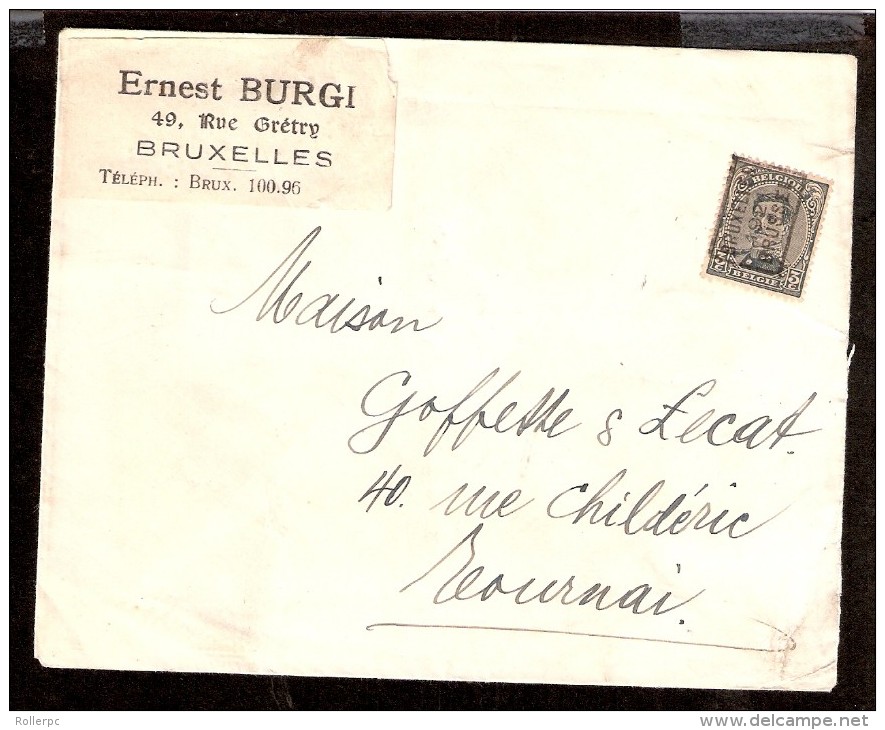 Ernest BURGI
49, Rue Grétry
BRUXELLES
TÉLÉPH. : BRUX. 100.96
BELGIQUE
BRUXEL
192
BRUSS
BELGIË
Maison
Goffette & Lecat.
40. rue Childéric
Tournai.
Rollerpc
www.delcampe.net